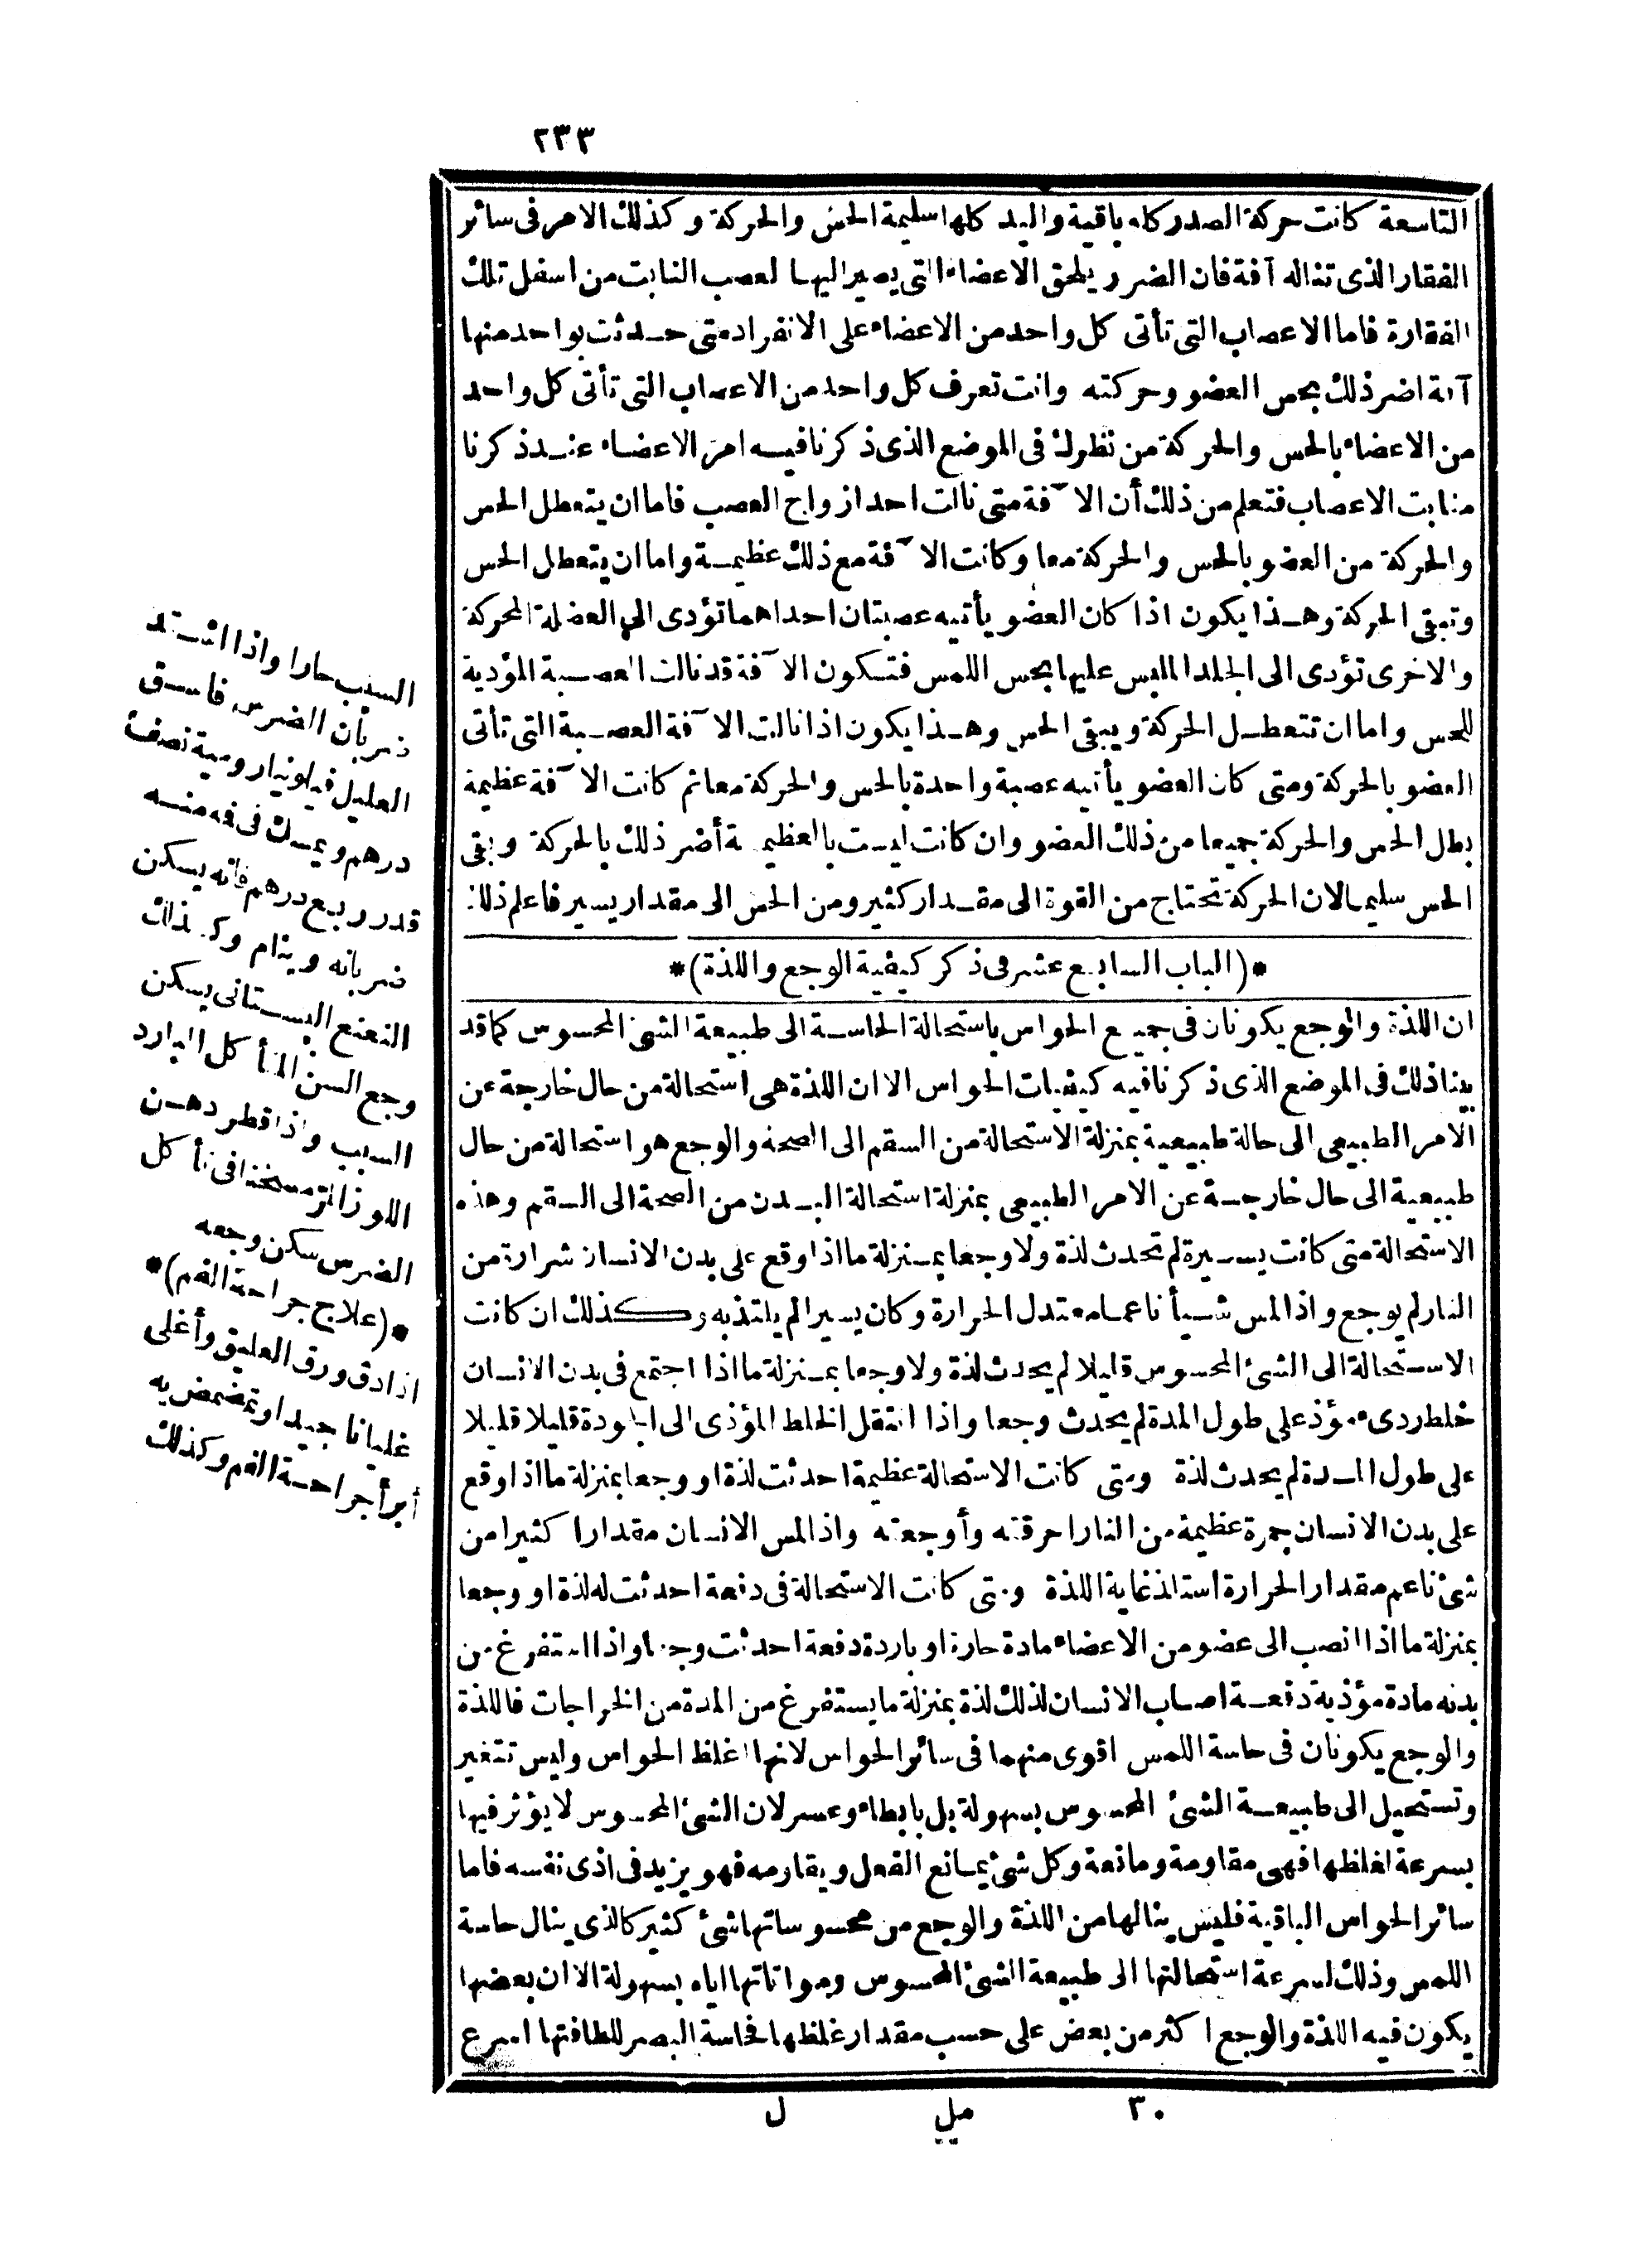 ٢٣٣
التاسعة كانت حركة الصدر كله باقية واليد كلها سليمة الحس والحركة وكذلك الامر فى سائر
الفقار الذى تناله آفة فان الضرر يلحق الاعضاء التى يصير اليها العصب النابت من اسفل تلك
الفقارة فاما الاعصاب التى تأتى كل واحد من الاعضاء على الانفراد متى حدثت بواحد منها
آفة اضر ذلك بحس العضو وحركته وانت تعرف كل واحد من الاعصاب التى تأتى كل واحد
من الاعضاء بالحس والحركة من نظرك فى الموضع الذى ذكرنا فيه امر الاعضاء عند ذكرنا
منابت الاعصاب فتعلم من ذلك أن الآفة متى نالت احد ازواج العصب فاما ان يتعطل الحس
والحركة من العضو بالحس والحركة معا وكانت الآفة مع ذلك عظيمة واما ان يتعطل الحس
وتبقى الحركة وهذا يكون اذا كان العضو يأتيه عصبتان احداهما تؤدى الى العضلة المحركة
والاخرى تؤدى الى الجلد الملبس عليها بحس اللمس فتكون الآفة قد نالت العصبة المؤدية
للحس واما ان تتعطل الحركة ويبقى الحس وهذا يكون اذا نالت الآفة العصبة التى تأتى
العضو بالحركة ومتى كان العضو يأتيه عصبة واحدة بالحس والحركة معا ثم كانت الآفة عظيمة
بطل الحس والحركة جميعا من ذلك العضو وان كانت ليست بالعظيمة أضر ذلك بالحركة وبقى
الحس سليما لان الحركة تحتاج من القوة الى مقدار كثير ومن الحس الى مقدار يسير فاعلم ذلك
*(الباب السابع عشر فى ذكر كيفية الوجع واللذة)*
ان اللذة والوجع يكونان فى جميع الحواس باستحالة الحاسة الى طبيعة الشئ المحسوس كما قد
بينا ذلك فى الموضع الذى ذكرنا فيه كيفيات الحواس الا ان اللذة هى استحالة من حال خارجة عن
الامر الطبيعى الى حالة طبيعية بمنزلة الاستحالة من السقم الى الصحة والوجع هو استحالة من حال
طبيعية الى حال خارجة عن الامر الطبيعى بمنزلة استحالة البدن من الصحة الى السقم وهذه
الاستحالة متى كانت يسيرة لم تحدث لذة ولا وجعا بمنزلة ما اذا وقع على بدن الانسان شرارة من
النار لم يوجع واذا لمس شيأ ناعما معتدل الحرارة وكان يسيرا لم يلتذ به وكذلك ان كانت
الاستحالة الى الشئ المحسوس قليلا لم يحدث لذة ولا وجعا بمنزلة ما اذا اجتمع فى بدن الانسان
خلط ردىء مؤذ على طول المدة لم يحدث وجعا واذا انتقل الخلط المؤذى الى الجودة قليلا قليلا
على طول المدة لم يحدث لذة ومتى كانت الاستحالة عظيمة احدثت لذة او وجعا بمنزلة ما اذا وقع
على بدن الانسان جمرة عظيمة من النار احرقته وأوجعته واذا لمس الانسان مقدارا كثيرا من
شئ ناعم مقدار الحرارة استلذ غاية اللذة ومتى كانت الاستحالة فى دفعة احدثت له لذة او وجعا
بمنزلة ما اذا انصب الى عضو من الاعضاء مادة حارة او باردة دفعة احدثت وجعا واذا استفرغ من
بدنه مادة مؤذية دفعة اصاب الانسان لذلك لذة بمنزلة ما يستفرغ من المدة من الخراجات فاللذة
والوجع يكونان فى حاسة اللمس اقوى منهما فى سائر الحواس لانها اغلظ الحواس وليس تتغير
وتستحيل الى طبيعة الشئ المحسوس بسهولة بل بابطاء وعسر لان الشئ المحسوس لا يؤثر فيها
بسرعة لغلظها فهى مقاومة ومانعة وكل شئ يمانع الفعل ويقاومه فهو يزيد فى اذى نفسه فاما
سائر الحواس الباقية فليس ينالها من اللذة والوجع من محسوساتها شئ كثير كالذى ينال حاسة
اللمس وذلك لسرعة استحالتها الى طبيعة الشئ المحسوس ومواتاتها اياه بسهولة الا ان بعضها
يكون فيه اللذة والوجع اكثر من بعض على حسب مقدار غلظها فحاسة البصر للطافتها اسرع
٣٠ مل ل
السبب حارا واذا اشتد
ضربان الضرس فاسق
العليل فيلونيا رومية نصف
درهم ويمسك فى فمه منه
قدر ربع درهم فانه يسكن
ضربانه وينام وكذلك
النعنع البستانى يسكن
وجع السن المتأكل البارد
السبب واذا قطر دهن
اللوز المر مسخنا فى تأكل
الضرس سكن وجعه
*(علاج جراحة الفم)*
اذا دق ورق العليق وأغلى
غليانا جيدا وتمضمض به
أبرأ جراحة الفم وكذلك